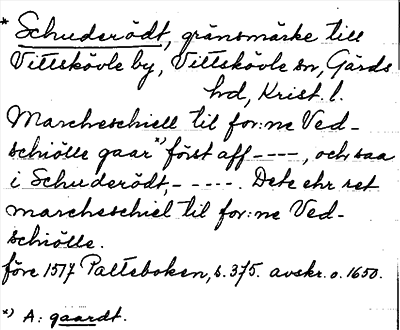 * Schuderödt, gränsmärke till
Vittskövle by, Vittskövle sn, Gärds
hd, Krist. l.
Marcheschiell til for:ne Ved-
schiölle gaar*) först aff ----, och saa
i Schuderödt, - ----. Dete ehr ret
marcheschiel til for:ne Ved-
schiölle.
före 1517 Palteboken, s. 375. avskr. o. 1650.
*) A: gaardt.